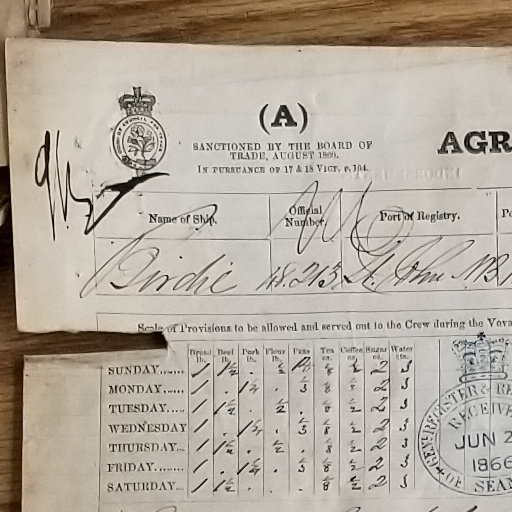 (A)
SANCTIONED BY THE BOARD OF
TRADE, AUGUST 1860.
IN PURSUANCE OF 17 & 18 VICT. c. 104.
AGR
Name of Ship.
Official
Number.
Port of Registry.
Po
Birdie
48.213
St. John NB
Scale of Provisions to be allowed and served out to the Crew during the Voya
Bread Beef Pork Flour Peas Tea Coffee Sugar Water
lb. lb. lb. lb. pt. oz. oz. oz. qts.
SUNDAY...... 1 1½ . ½ ⅛ ½ 2 3
MONDAY...... 1 . 1¼ . ⅓ ⅛ ½ 2 3
TUESDAY..... 1 1½ . ½ . ⅛ ½ 2 3
WEDNESDAY 1 . 1¼ . ⅓ ⅛ ½ 2 3
THURSDAY... 1 1½ . ½ . ⅛ ½ 2 3
FRIDAY........ 1 . 1¼ . ⅓ ⅛ ½ 2 3
SATURDAY... 1 1½ . . . ⅛ ½ 2 3
GENL. REGISTER & RE
RECEIVE
JUN 2
1866
OF SEAM